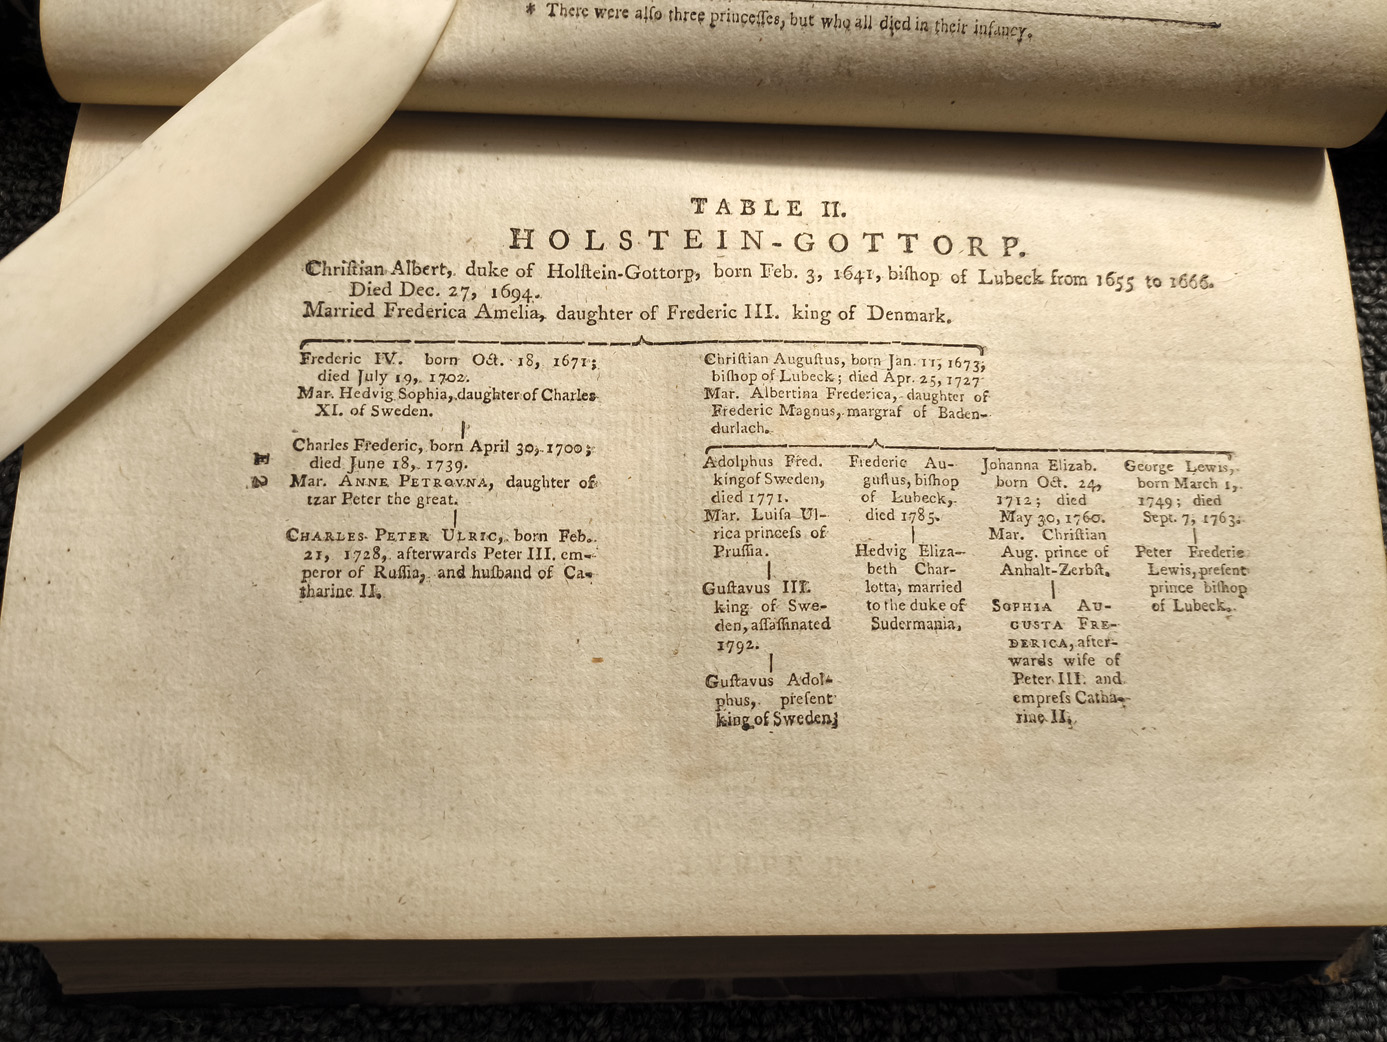 * There were alſo three princeſſes, but who all died in their infancy.
TABLE II.
HOLSTEIN-GOTTORP.
Chriſtian Albert, duke of Holſtein-Gottorp, born Feb. 3, 1641, biſhop of Lubeck from 1655 to 1666.
Died Dec. 27, 1694.
Married Frederica Amelia, daughter of Frederic III. king of Denmark.
Frederic IV. born Oct. 18, 1671;
died July 19, 1702.
Mar. Hedvig Sophia, daughter of Charles
XI. of Sweden.
Charles Frederic, born April 30, 1700;
died June 18, 1739.
Mar. ANNE PETROVNA, daughter of
tzar Peter the great.
CHARLES PETER ULRIC, born Feb.
21, 1728, afterwards Peter III. em-
peror of Ruſſia, and huſband of Ca-
tharine II.
E
2
Chriſtian Auguſtus, born Jan. 11, 1673;
biſhop of Lubeck; died Apr. 25, 1727
Mar. Albertina Frederica, daughter of
Frederic Magnus, margraf of Baden-
durlach.
Adolphus Fred.
kingof Sweden,
died 1771.
Mar. Luiſa Ul-
rica princeſs of
Pruſſia.
Guſtavus III.
king of Swe-
den, aſſaſſinated
1792.
Guſtavus Adol-
phus, preſent
king of Sweden;
Frederic Au-
guſtus, biſhop
of Lubeck,
died 1785.
Hedvig Eliza-
beth Char-
lotta, married
to the duke of
Sudermania,
Johanna Elizab.
born Oct. 24,
1712; died
May 30, 1760.
Mar. Chriſtian
Aug. prince of
Anhalt-Zerbſt.
SOPHIA AU-
GUSTA FRE-
DERICA, after-
wards wife of
Peter III. and
empreſs Catha-
rine II.
George Lewis,
born March 1,
1749; died
Sept. 7, 1763.
Peter Frederic
Lewis, preſent
prince biſhop
of Lubeck.